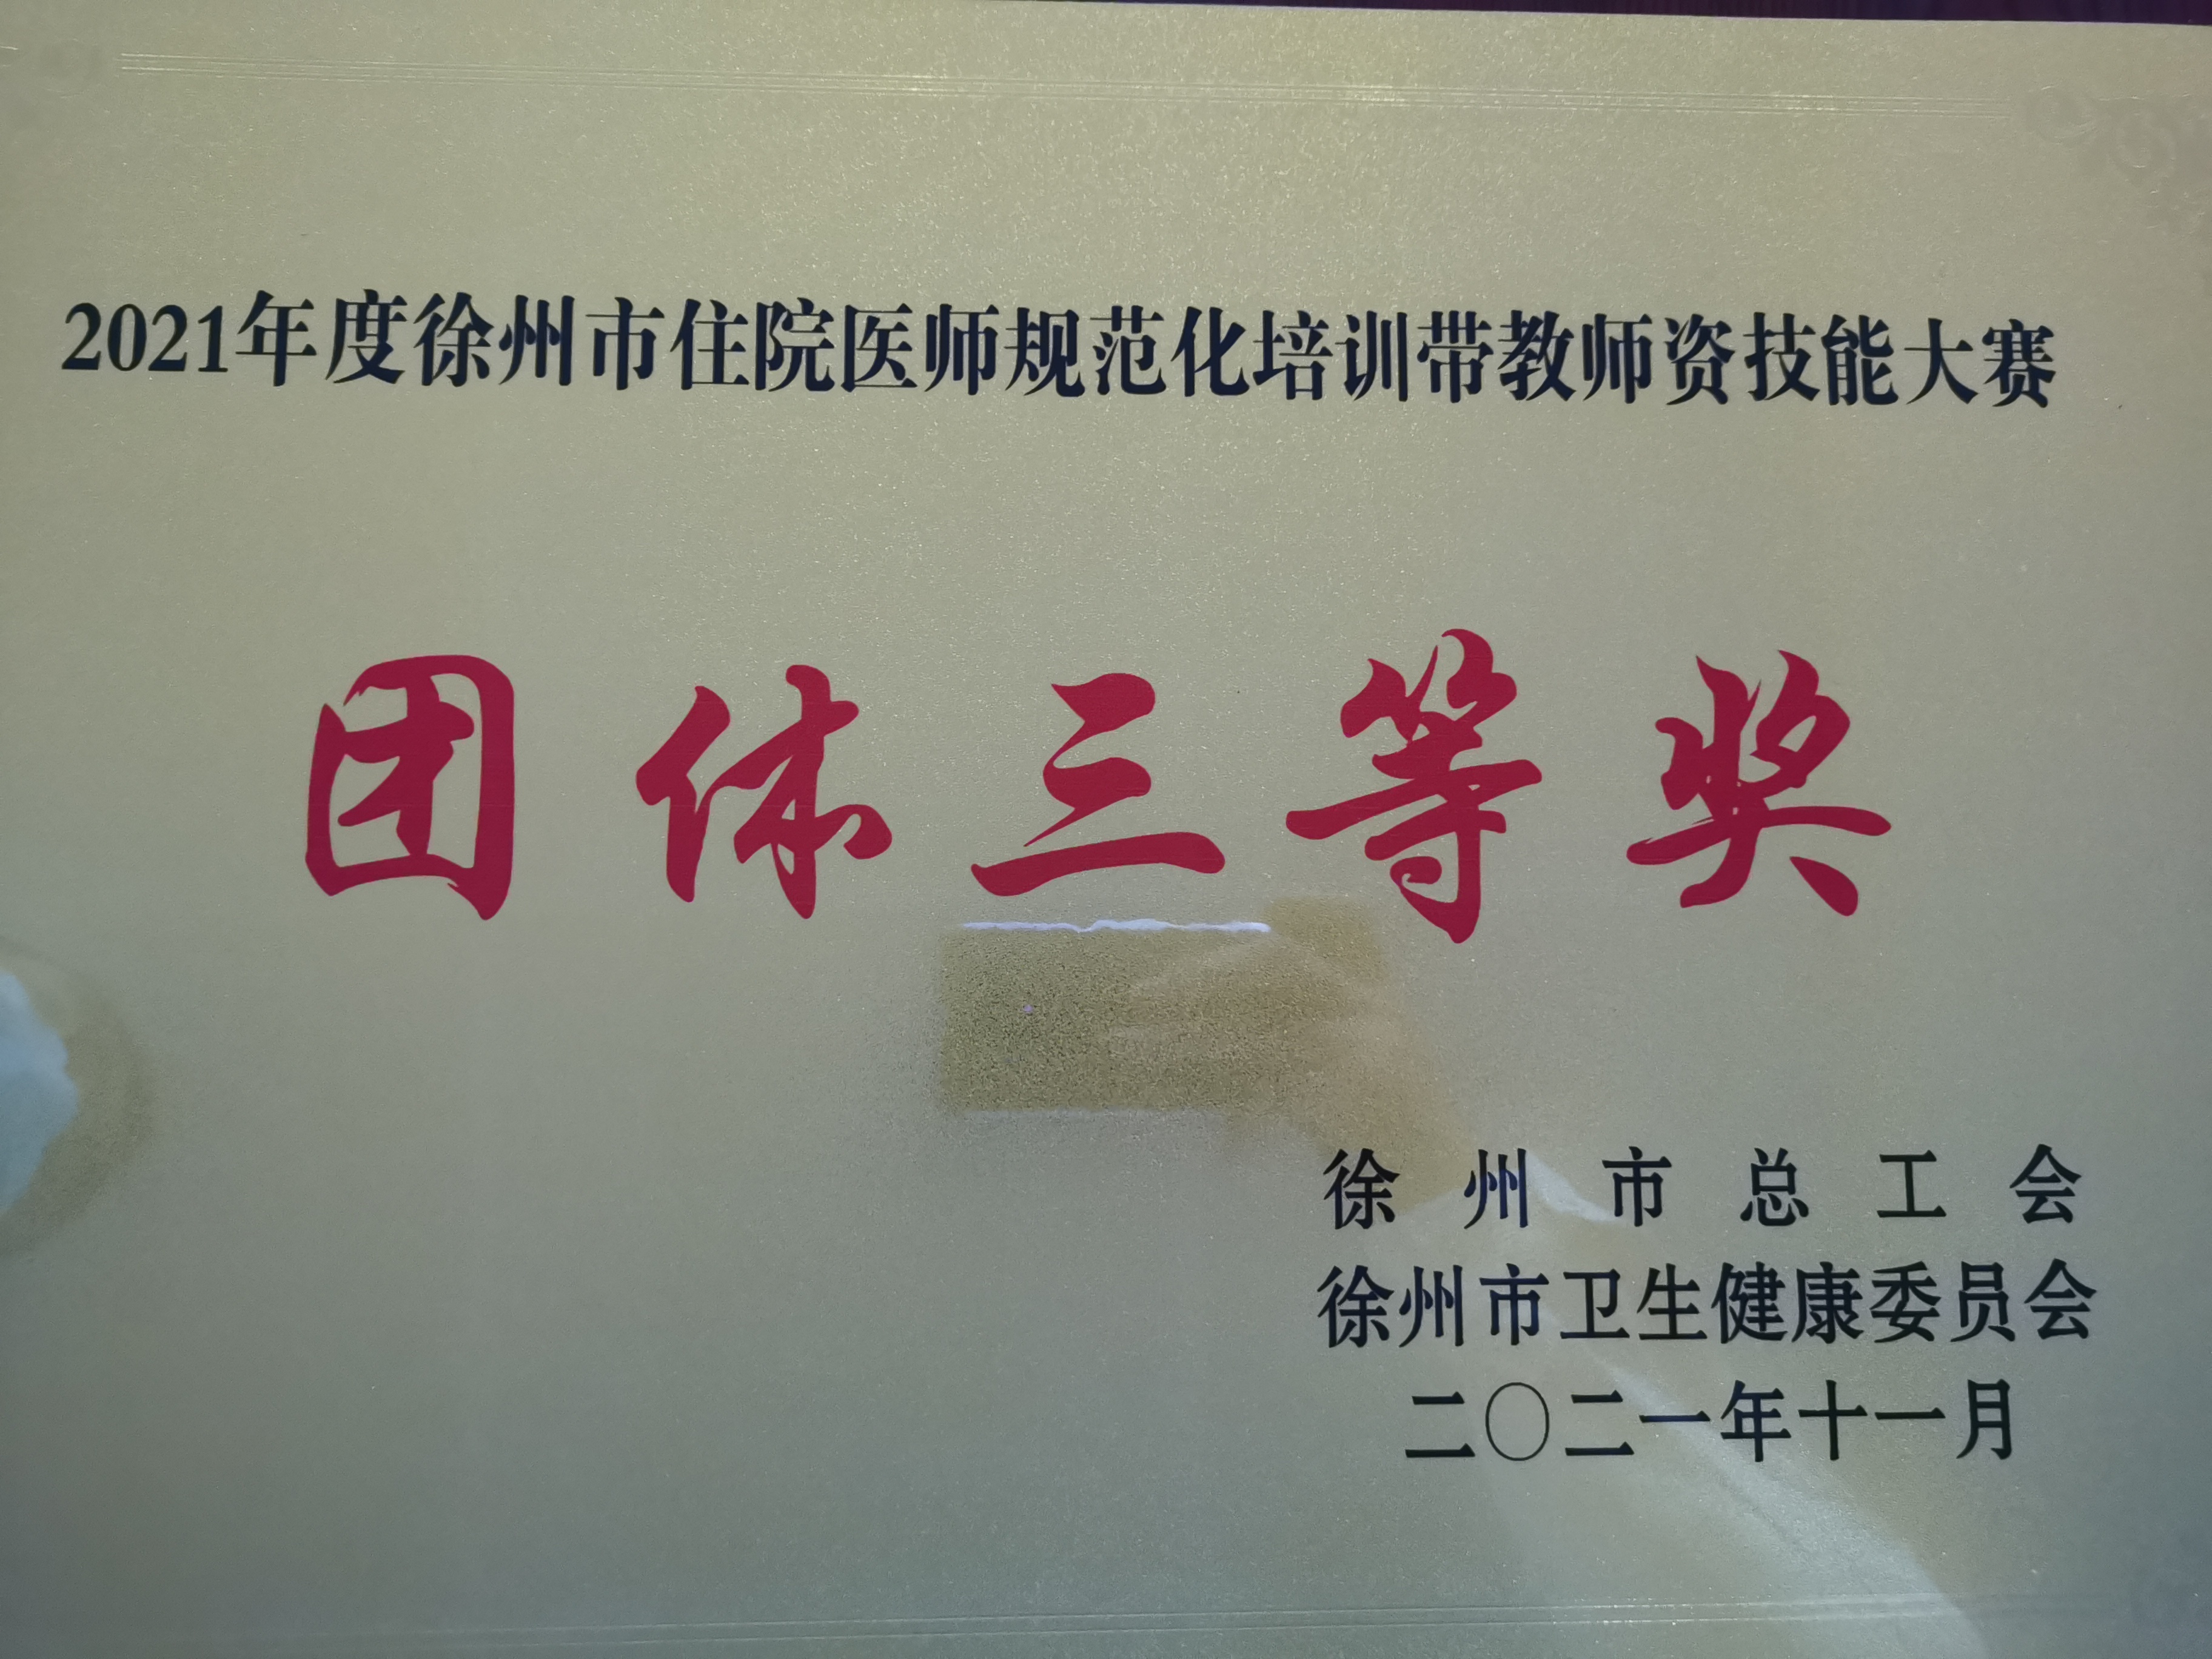 2021年度徐州市住院医师规范化培训带教师资技能大赛
团体三等奖
徐州市总工会
徐州市卫生健康委员会
二〇二一年十一月